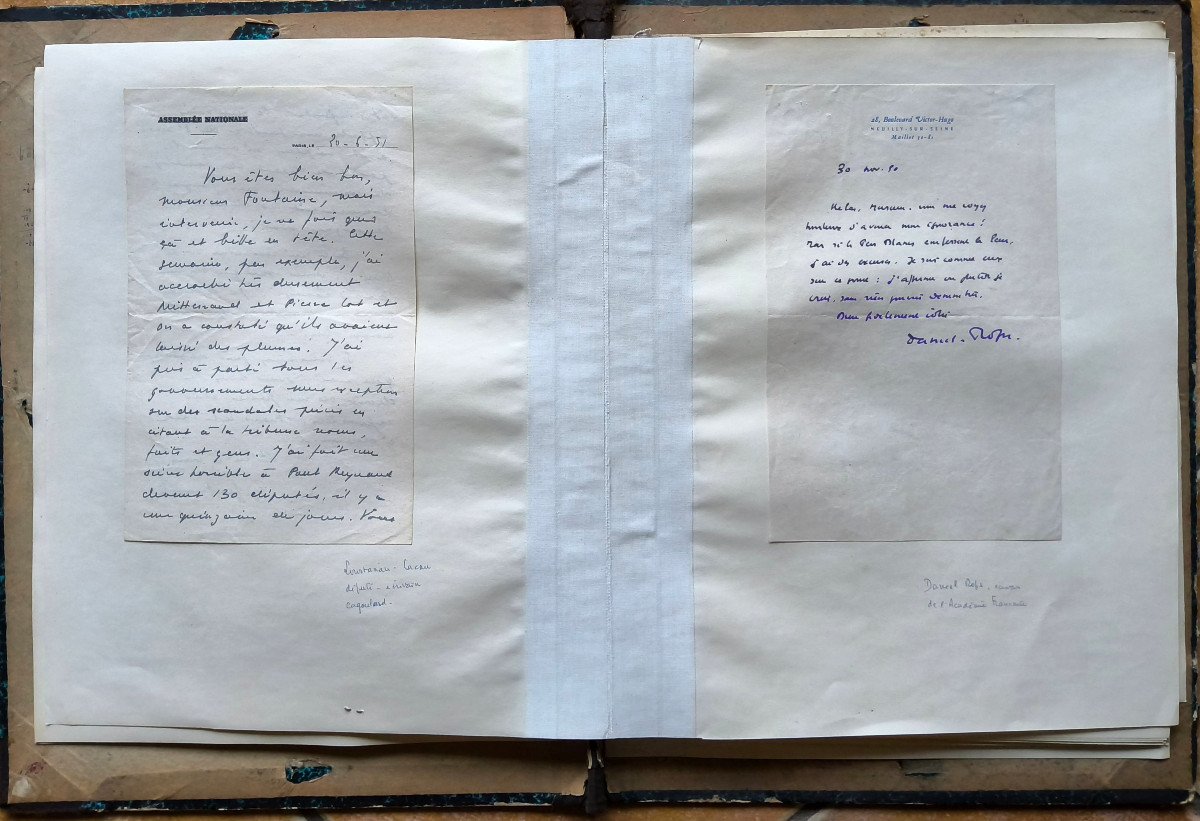 ASSEMBLÉE NATIONALE
PARIS LE 20-6-51
Vous êtes bien bon,
monsieur Fontaine, mais
intervenir, je ne fais que
çà et bille en tête. Cette
semaine, par exemple, j'ai
accroché très durement
Mitterrand et Pierre Cot et
on a constaté qu'ils avaient
laissé des plumes. J'ai
pris à parti tous les
gouvernements sans exception
sur des scandales précis en
citant à la tribune noms,
faits et gens. J'ai fait une
scène horrible à Paul Reynaud
devant 130 députés, il y a
une quinzaine de jours. Vous
Loustaunau-Lacau
député - écrivain
cagoulard.
28, Boulevard Victor-Hugo
NEUILLY-SUR-SEINE
Maillot
30 nov. 50
Hélas, Monsieur, vous me voyez
honteux d'avouer mon ignorance!
J'ai des excuses. Je suis comme eux
sur ce point : j'affirme
sans rien
Daniel-Rops.
Daniel Rops,
de l'Académie Française